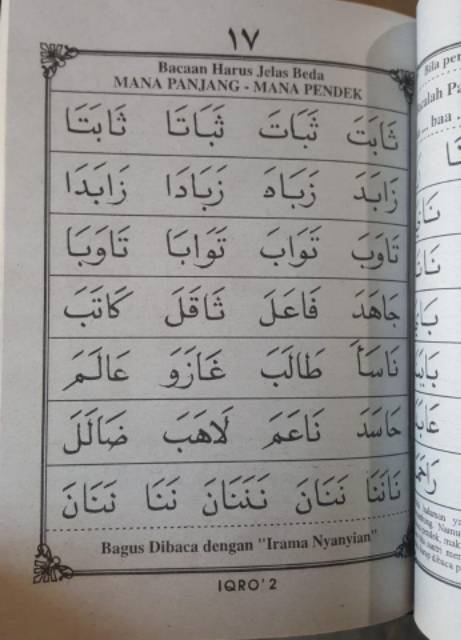 ١٧
Bacaan Harus Jelas Beda
MANA PANJANG - MANA PENDEK
ثَابَتَ ثَبَاتَ ثَبَاتَا ثَابَتَا
زَابَدَ زَبَادَ زَبَادَا زَابَدَا
تَاوَبَ تَوَابَ تَوَابَا تَاوَبَا
جَاهَدَ فَاعَلَ ثَاقَلَ كَاتَبَ
نَاسَأَ طَالَبَ غَازَوَ عَالَمَ
حَاسَدَ نَاعَمَ لَاهَبَ ضَالَلَ
نَانَنَا نَنَانَ نَنَنَانَ نَنَا نَنَانَ
Bagus Dibaca dengan "Irama Nyanyian"
IQRO' 2
Bila
baa